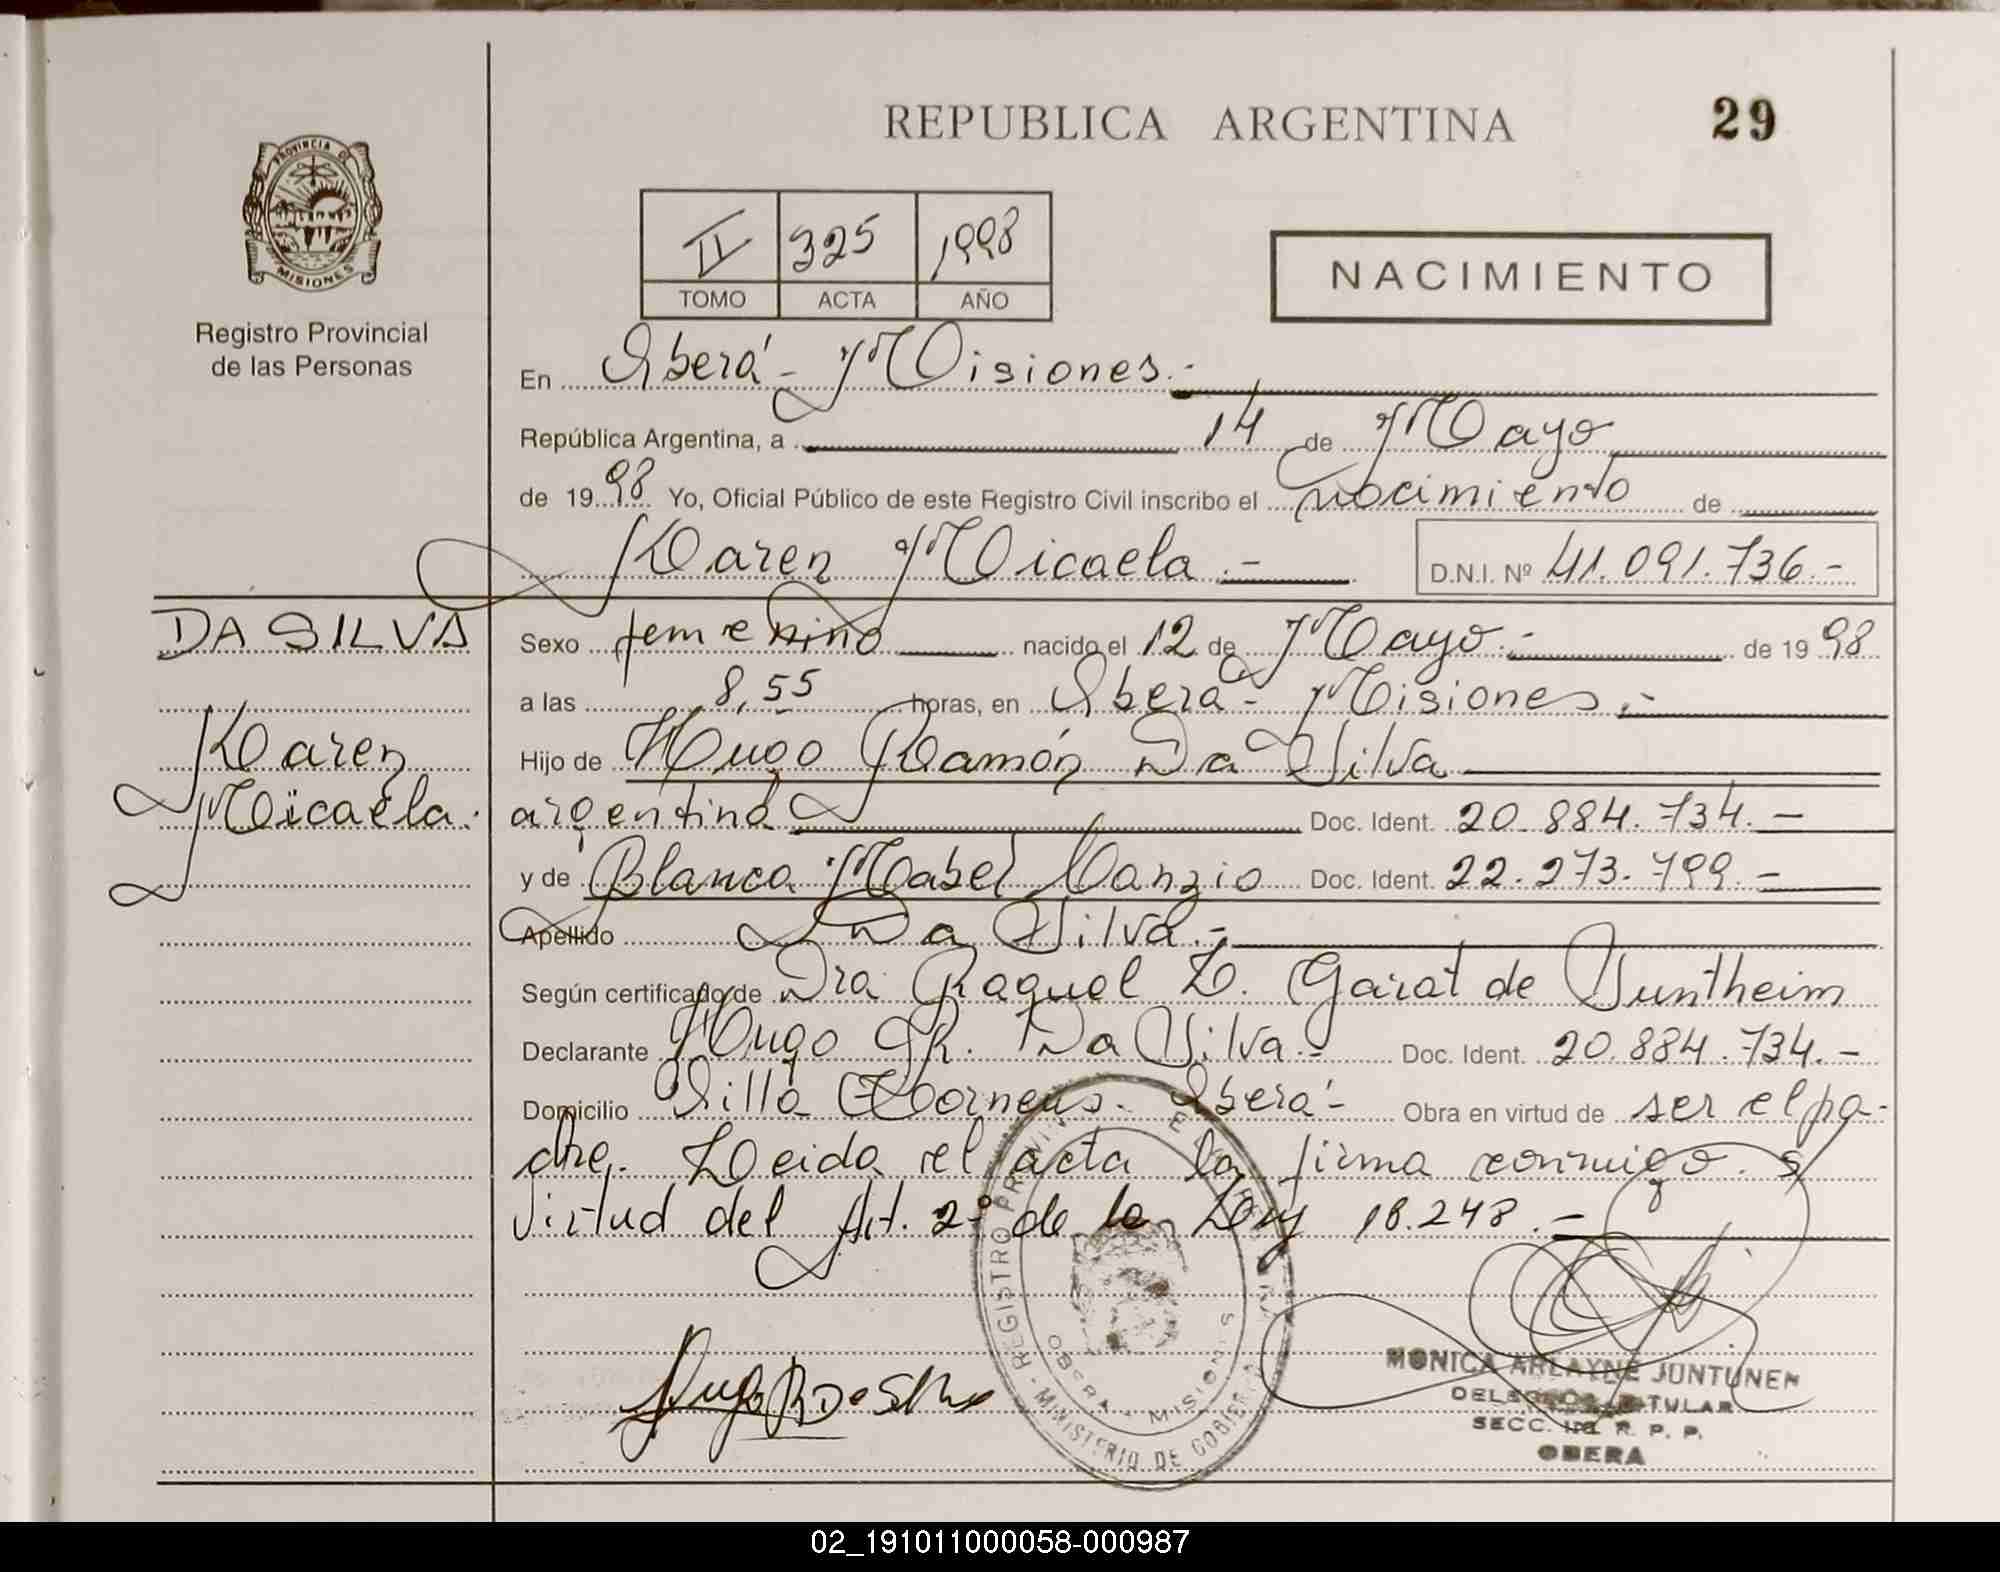 REPUBLICA ARGENTINA
29
PROVINCIA DE
MISIONES
Registro Provincial
de las Personas
II 325 1998
TOMO ACTA AÑO
NACIMIENTO
En Oberá - Misiones.-
República Argentina, a 14 de Mayo
de 1998 Yo, Oficial Público de este Registro Civil inscribo el nacimiento de
Karen Micaela.- D.N.I. Nº 41.091.736.-
DA SILVA
Karen
Micaela.
Sexo femenino nacido el 12 de Mayo.- de 1998
a las 8,55 horas, en Oberá - Misiones.-
Hijo de Hugo Ramón Da Silva
argentino Doc. Ident. 20.884.734.-
y de Blanca Mabel Doc. Ident. 22.273.799.-
Apellido Da Silva.-
Según certificado de Dra Raquel L. Garat de
Declarante Hugo R. Da Silva.- Doc. Ident. 20.884.734.-
Domicilio Villa Oberá- Obra en virtud de ser el pa-
dre. Leida el acta la firma conmigo.
virtud del Art. 2º de la Ley 18.248.-
REGISTRO
MINISTERIO DE GOBIERNO
OBERA - MISIONES
Hugo R Da Silva
MONICA ARLAYNE JUNTUNEN
TITULAR
SECC. R. P. P.
OBERA
02_191011000058-000987